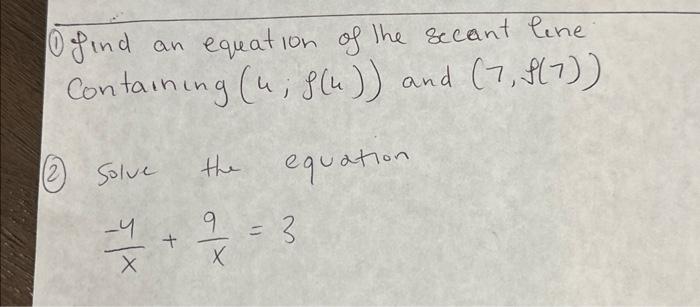 ① find an equation of the secant line
Containing (4; f(4)) and (7, f(7))
② Solve the equation
-4/x + 9/x = 3